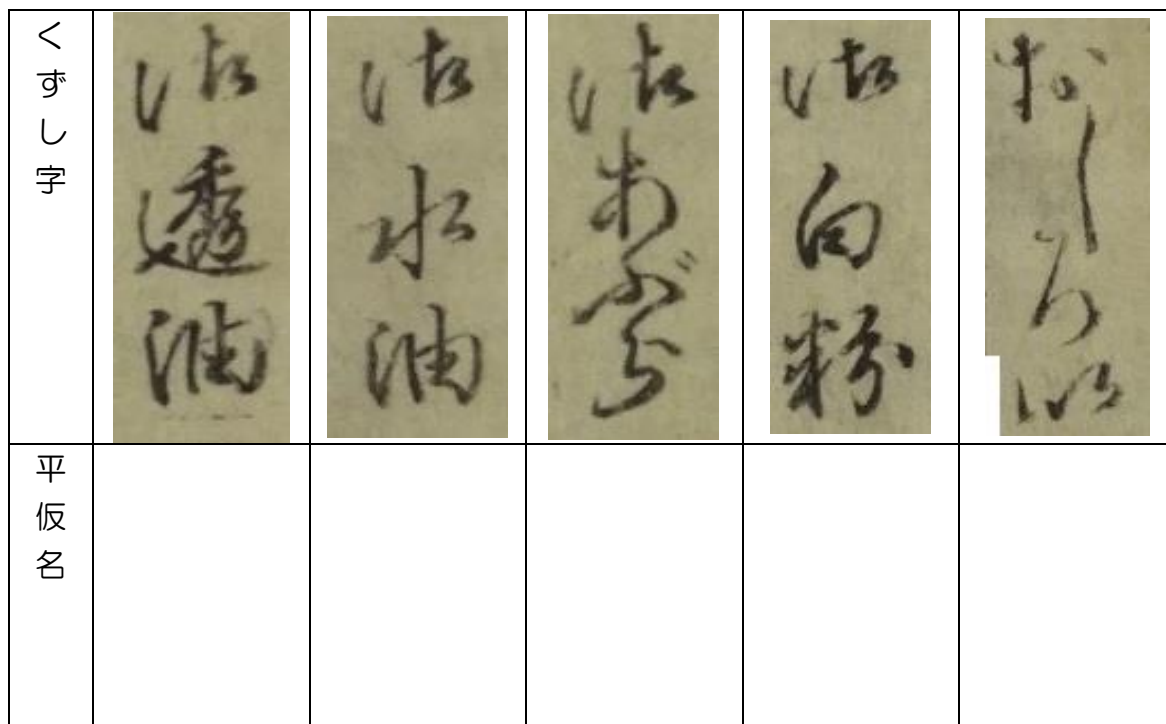 くずし字
御透油
御水油
御あぶら
御白粉
おしろい
平仮名